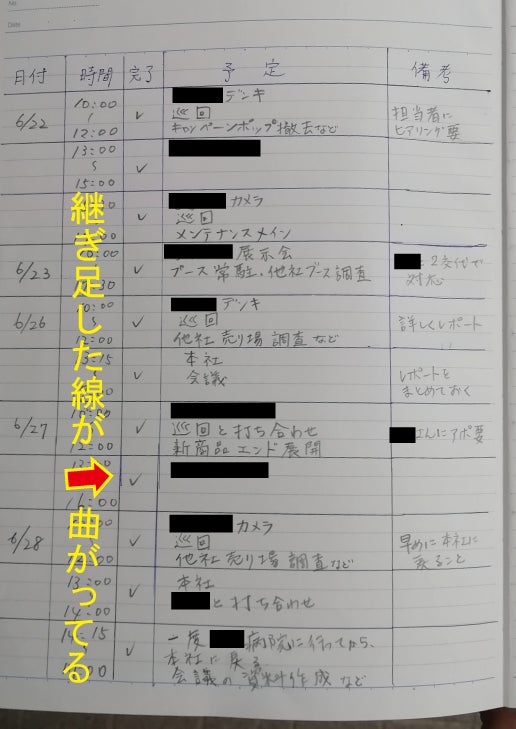 No.
Date
日付 時間 完了 予定 備考
6/22 10:00 〜 12:00 ✓ デンキ
巡回
キャンペーンポップ撤去など
担当者に
ヒアリング要
13:00 〜 15:00 ✓
✓ カメラ
巡回
メンテナンスメイン
6/23 10:00 30 ✓ 展示会
ブース常駐、他社ブース調査
2交代で
対応
6/26 10:00 ✓ デンキ
巡回
他社売り場調査など
詳しくレポート
13:15 ✓ 本社
会議
レポートを
まとめておく
6/27 12:00 ✓
巡回と打ち合わせ
新商品エンド展開
さんにアポ要
✓
6/28 ✓ カメラ
巡回
他社売り場調査など
早めに本社に
戻ること
13:00 〜 14:00 ✓ 本社
と打ち合わせ
14:15 ✓ 一度 病院に行ってから、
本社に戻る
会議の資料作成など
継ぎ足した線が
曲がってる